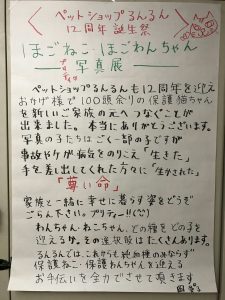 ペットショップるんるん
12周年誕生祭
ほごねこ ほごわんちゃん
プリティ
写真展
ペットショップるんるんも12周年を迎え
おかげ様で100頭余りの保護猫ちゃん
を新しいご家族の元へつなぐことが
出来ました。本当にありがとうございます。
写真の子たちはごく一部の子ですが
事故やケガ病気をのりこえ「生きた」
手を差し出してくれた方々に「生かされた」
「尊い命」
家族と一緒に幸せに暮らす姿をどうぞ
ごらん下さい。プリティー!!
わんちゃん・ねこちゃん、どの種をどの子を
迎えるか。その選択肢はたくさんあります。
るんるんでは、これからも純血種のみならず
保護ねこ・保護わんちゃんを迎える
お手伝いを全力でさせて頂きます